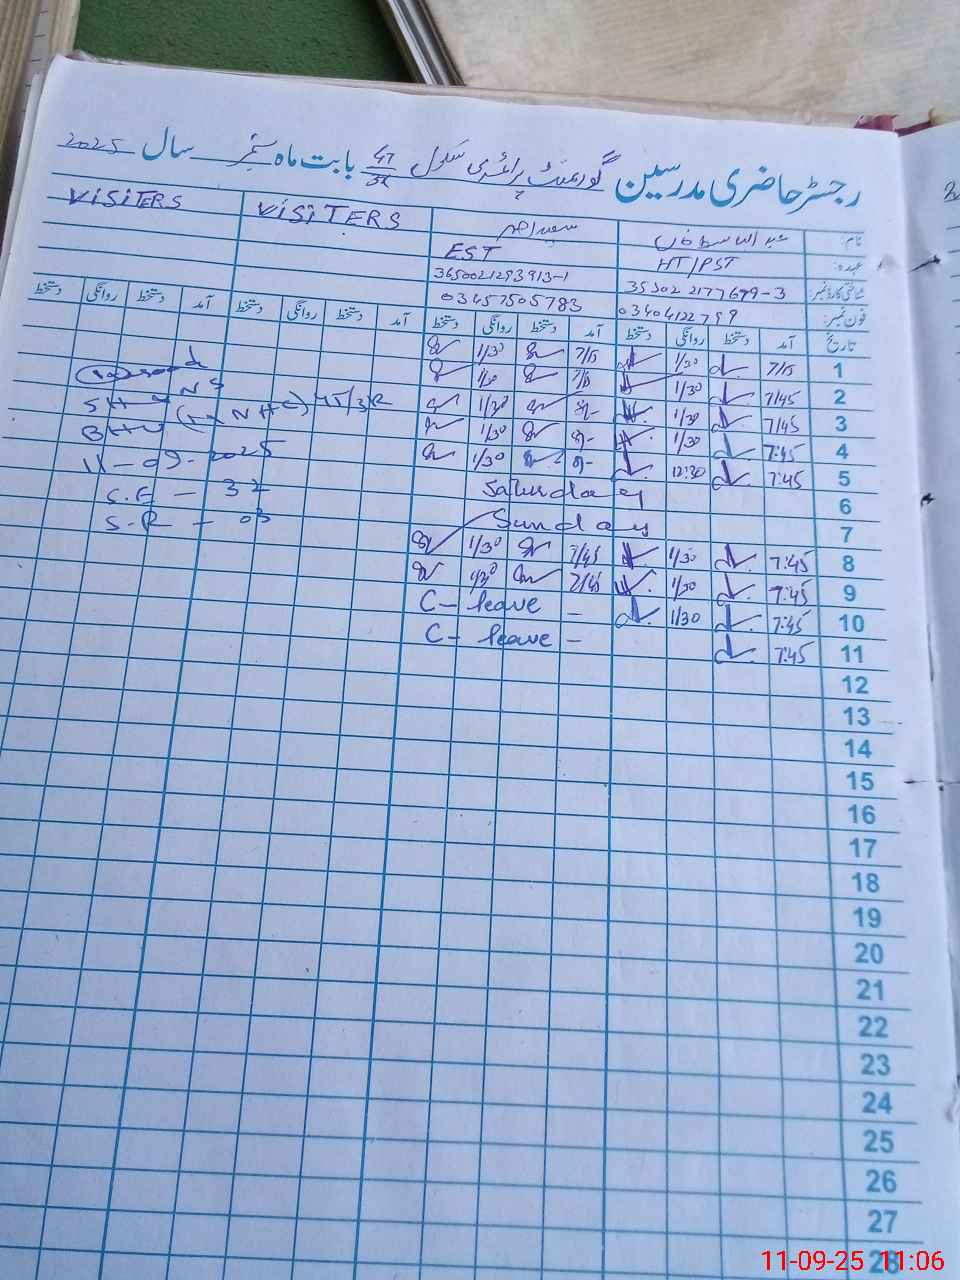 رجسٹر حاضری مدرسین گورنمنٹ پرائمری سکول 47/3R بابت ماہ ستمبر سال 2025
نام: سعید احمد VISITERS VISITERS
عہدہ: HT/PST EST
شناختی کارڈ نمبر: 35302 2177699-3 3650021293913-1
فون نمبر: 03404122799 03457505783
تاریخ آمد دستخط روانگی دستخط آمد دستخط روانگی دستخط آمد دستخط روانگی دستخط آمد دستخط روانگی دستخط
1 7/15 1/30 7/15 1/30
2 7/45 1/30 7/15 1/30
3 7/45 1/30 1/30
4 7:45 1/30 1/30
5 7:45 12:30 1/30
6 Saturday
7 Sunday
8 7:45 1/30 7/45 1/30
9 7:45 1/30 7/45 1/30
10 7:45 1/30 C- leave -
11 7:45 C- leave -
12
13
14
15
16
17
18
19
20
21
22
23
24
25
26
27
28
SH & NS
BHU 45/3R
11-09-2025
S.E - 37
S.R - 03
11-09-25 11:06